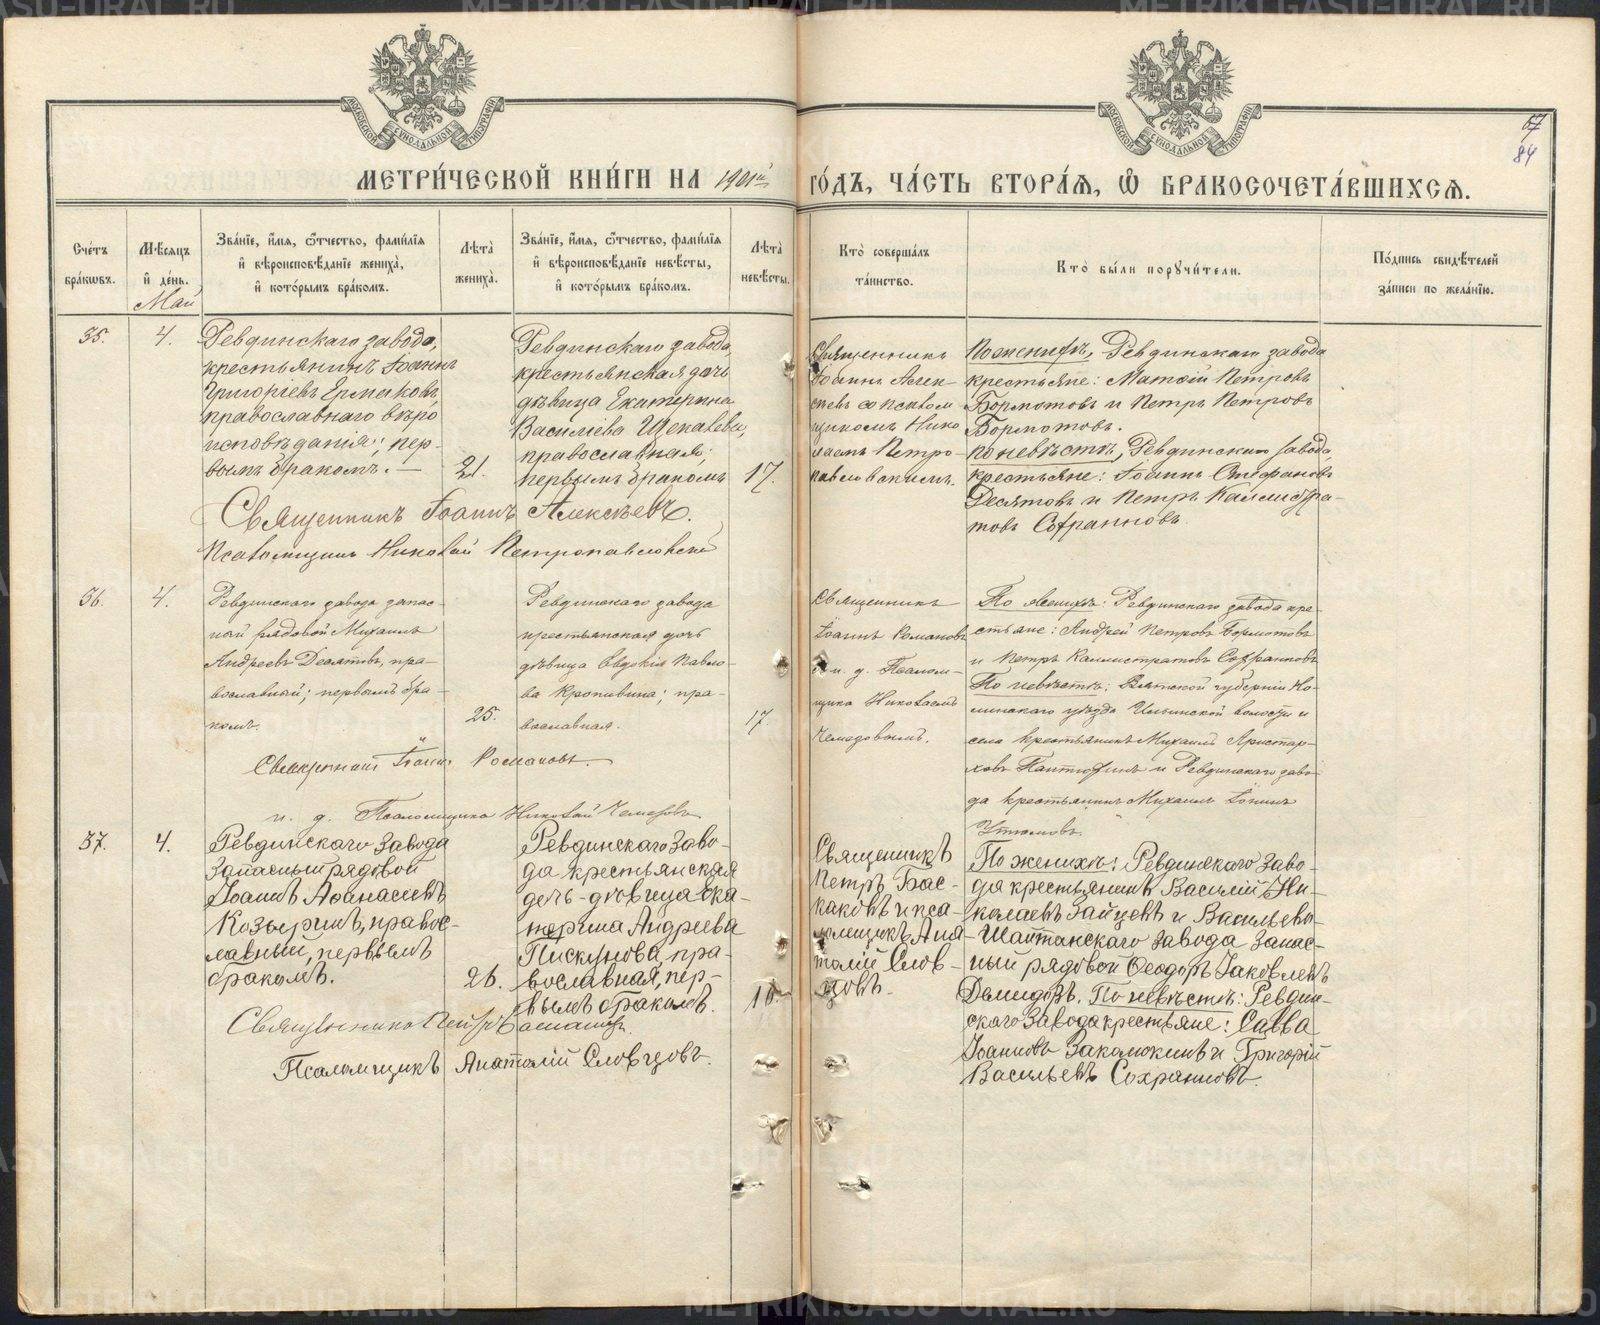 МЕТРИ́ЧЕСКОЙ КНИ́ГИ НА 1901й ГО́ДЪ, ЧА́СТЬ ВТОРА́Ѧ, Ѽ БРАКОСОЧЕТА́ВШИХСѦ.
67
84
Сче́тъ бра́кѡвъ.
Мѣ́сѧцъ и҆ де́нь.
Май
Зва́нїе, и҆́мѧ, ѻ҆́тчество, фами́лїѧ и҆ вѣроисповѣ́данїе жениха̀, и҆ кото́рымъ бра́комъ.
Лѣ́та жениха̀.
Зва́нїе, и҆́мѧ, ѻ҆́тчество, фами́лїѧ и҆ вѣроисповѣ́данїе невѣ́сты, и҆ кото́рымъ бра́комъ.
Лѣ́та невѣ́сты.
Кто̀ соверша́лъ та́инство.
Кто̀ бы́ли порꙋчи́тели.
По́дпись свидѣ́телей за́писи по жела́нїю.
35.
4.
Ревдинскаго завода,
крестьянинъ Іоаннъ
Григоріевъ Ермаковъ,
православнаго вѣро
исповѣданія; пер-
вымъ бракомъ.
21.
Ревдинскаго завода,
крестьянская дочь
дѣвица Екатерина
Василіева Щекалева,
православная;
первымъ бракомъ
17.
Священникъ
Іоаннъ Алек-
сѣевъ со псалом
щикомъ Нико
лаемъ Петро-
павловскимъ.
По женихѣ, Ревдинскаго завода
крестьяне: Матѳій Петровъ
Бормотовъ и Петръ Петровъ
Бормотовъ.
по невѣстѣ, Ревдинскаго завода,
крестьяне: Іоаннъ Стефановъ
Десятовъ и Петръ Каллистра-
товъ Софранновъ.
Священникъ Іоаннъ Алексѣевъ.
Псаломщикъ Николай Петропавловскій
36.
4.
Ревдинскаго завода запас-
ный рядовой Михаилъ
Андреевъ Десятовъ, пра-
вославный; первымъ бра-
комъ.
25.
Ревдинскаго завода
крестьянская дочь
дѣвица Евдокія Павло-
ва Кропивина; пра-
вославная.
17.
Священникъ
Іоаннъ Романовъ
и. д. Псалом-
щика Николаемъ
Чемодовымъ.
По женихѣ: Ревдинскаго завода кре-
стьяне: Андрей Петровъ Бормотовъ
и Петръ Каллистратовъ Софранновъ
По невѣстѣ: Вятской губерніи Но-
линскаго уѣзда Ильинской волости и
села крестьянинъ Михаилъ Аристар-
ховъ Пантюхинъ и Ревдинскаго заво-
да крестьянинъ Михаилъ Іонинъ
Утюмовъ.
Священникъ Іоаннъ Романовъ.
и. д. Псаломщика Николай Чемодовъ
37.
4.
Ревдинскаго завода
запасный рядовой
Іоаннъ Аѳанасіевъ
Козыринъ, правос-
лавный, первымъ
бракомъ.
26.
Ревдинскаго заво-
да крестьянская
дочь-дѣвица Ека-
терина Андреева
Пискунова, пра-
вославная, пер-
вымъ бракомъ.
Священникъ
Петръ Бас-
каковъ и пса-
ломщикъ Ана-
толій Слов-
цовъ.
По женихѣ: Ревдинскаго заво-
да крестьянинъ Василій Ни-
колаевъ Зайцевъ и Васильево-
Шайтанскаго завода запас-
ный рядовой Ѳеодоръ Іаковлевъ
Демидовъ. По невѣстѣ: Ревдин-
скаго завода крестьяне: Савва
Іоанновъ Закамокинъ и Григорій
Васильевъ Сохранновъ.
Священникъ Петръ Баскаковъ
Псаломщикъ Анатолій Словцовъ.